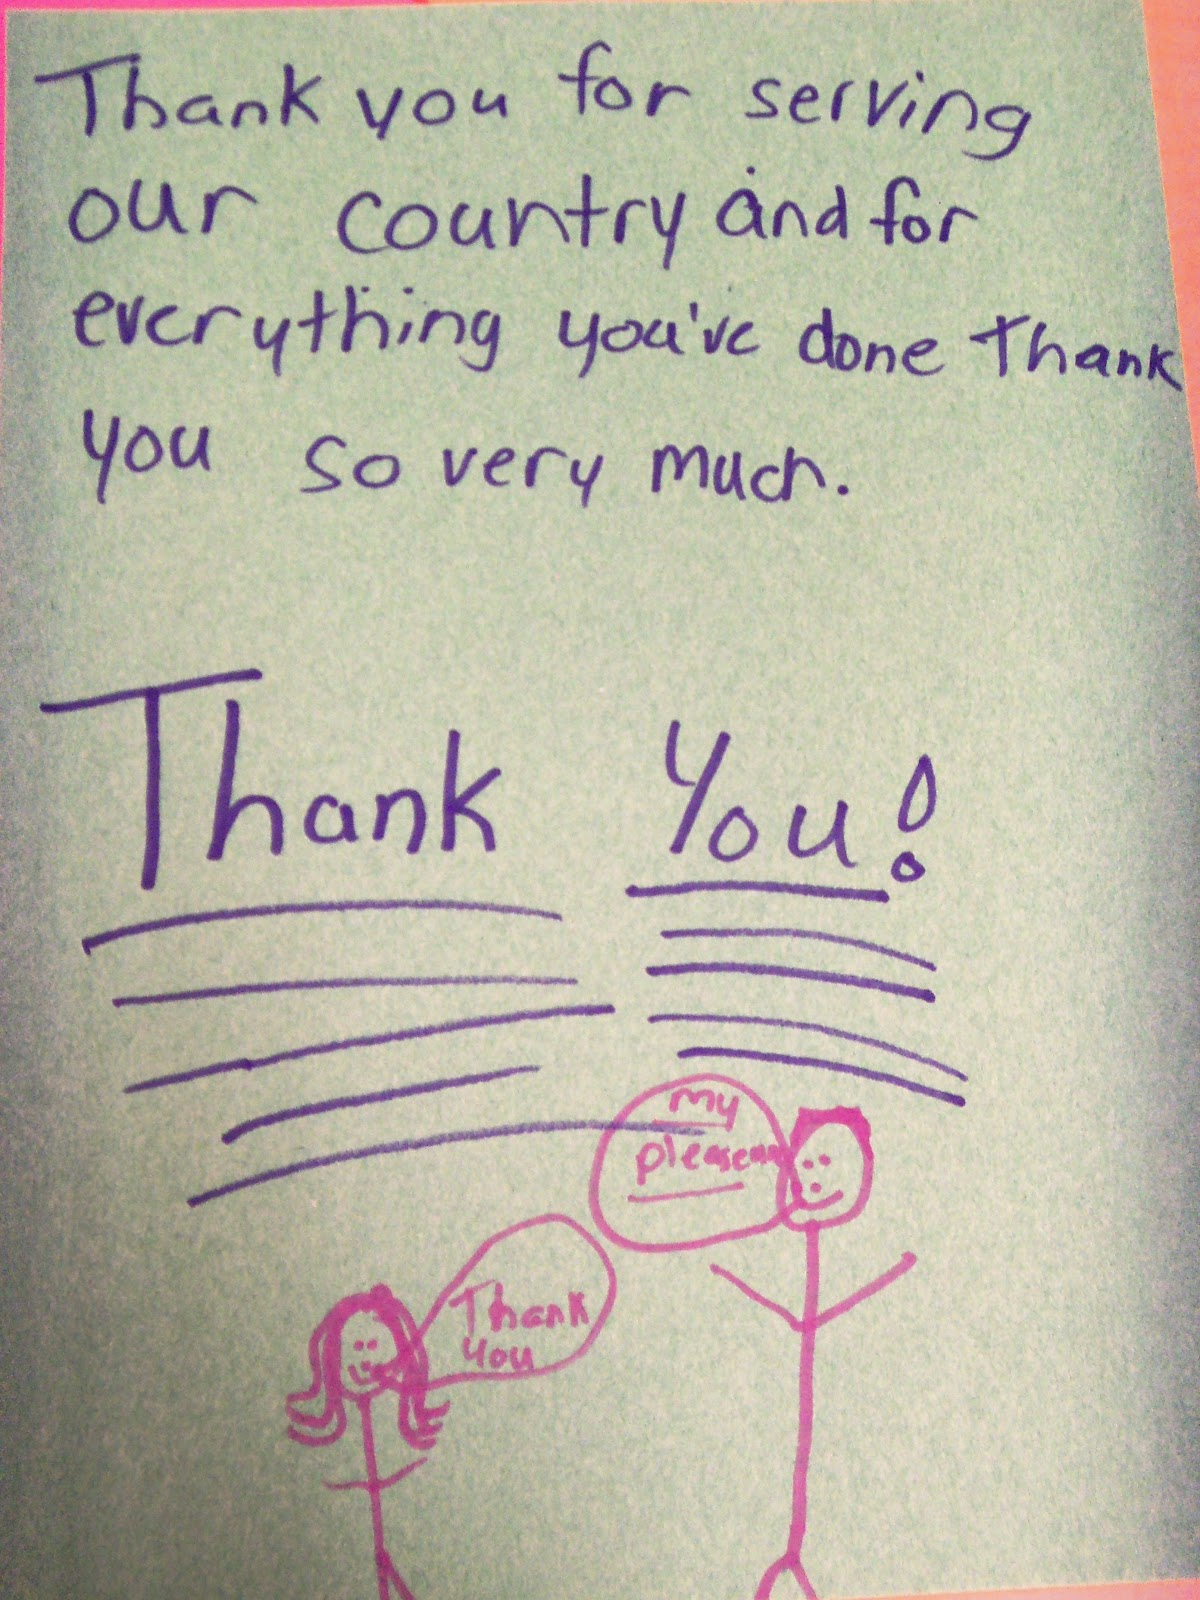 Thank you for serving
our country and for
everything you've done Thank
you so very much.
Thank You!
my
Thank
you